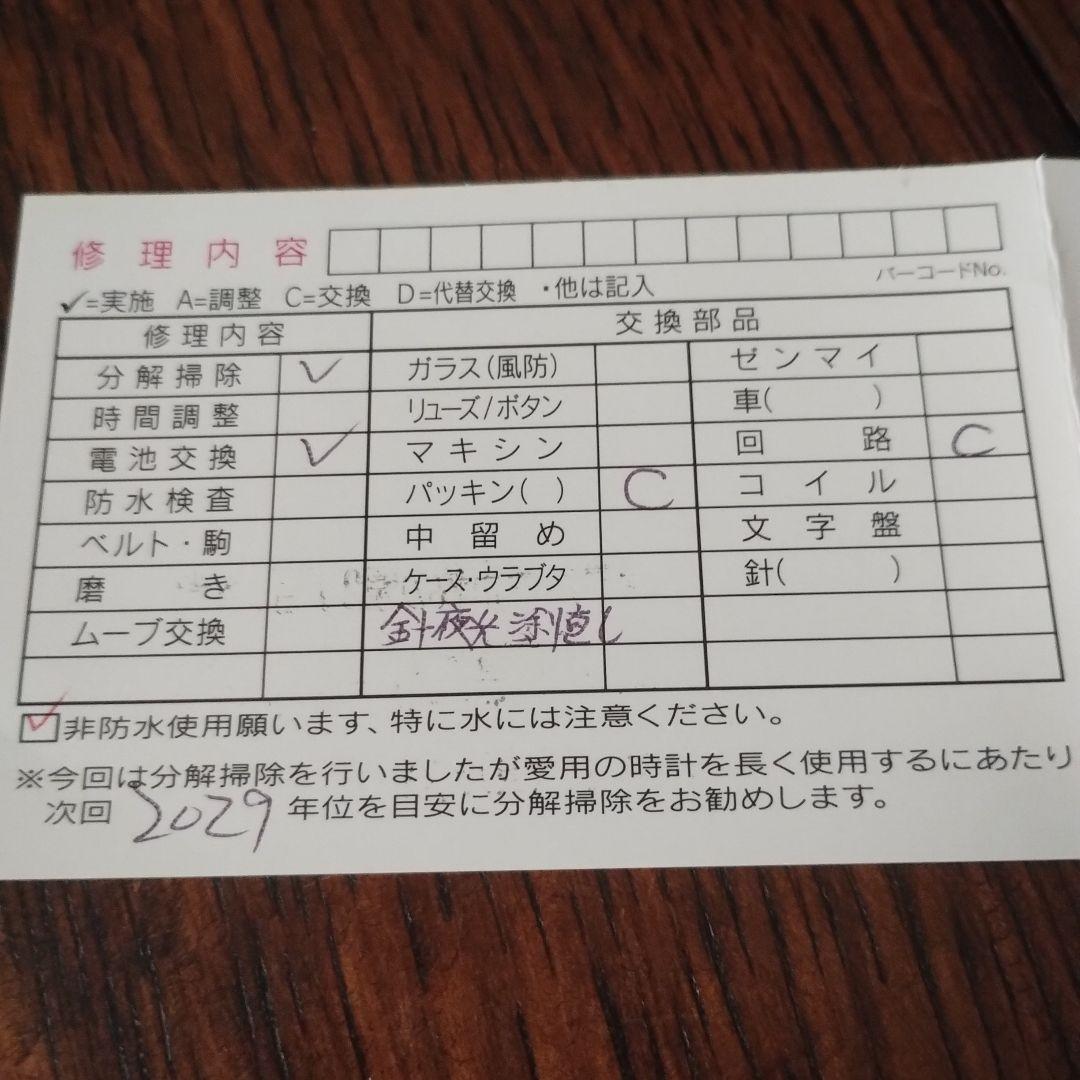 修理内容
バーコードNo.
✓=実施 A=調整 C=交換 D=代替交換 ・他は記入
修理内容 交換部品
分解掃除 ✓ ガラス(風防) ゼンマイ
時間調整 リューズ/ボタン 車( )
電池交換 ✓ マキシン 回路 C
防水検査 パッキン( ) C コイル
ベルト・駒 中留め 文字盤
磨き ケース・ウラブタ 針( )
ムーブ交換 針夜光塗り直し
✓非防水使用願います、特に水には注意ください。
※今回は分解掃除を行いましたが愛用の時計を長く使用するにあたり
次回 2029 年位を目安に分解掃除をお勧めします。